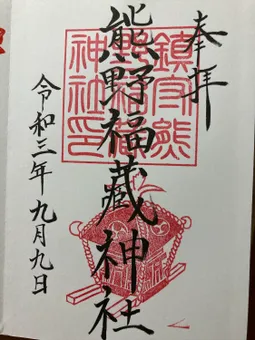 奉拝
鎮守熊
野福藏
神社印
熊野福藏神社
令和三年九月九日